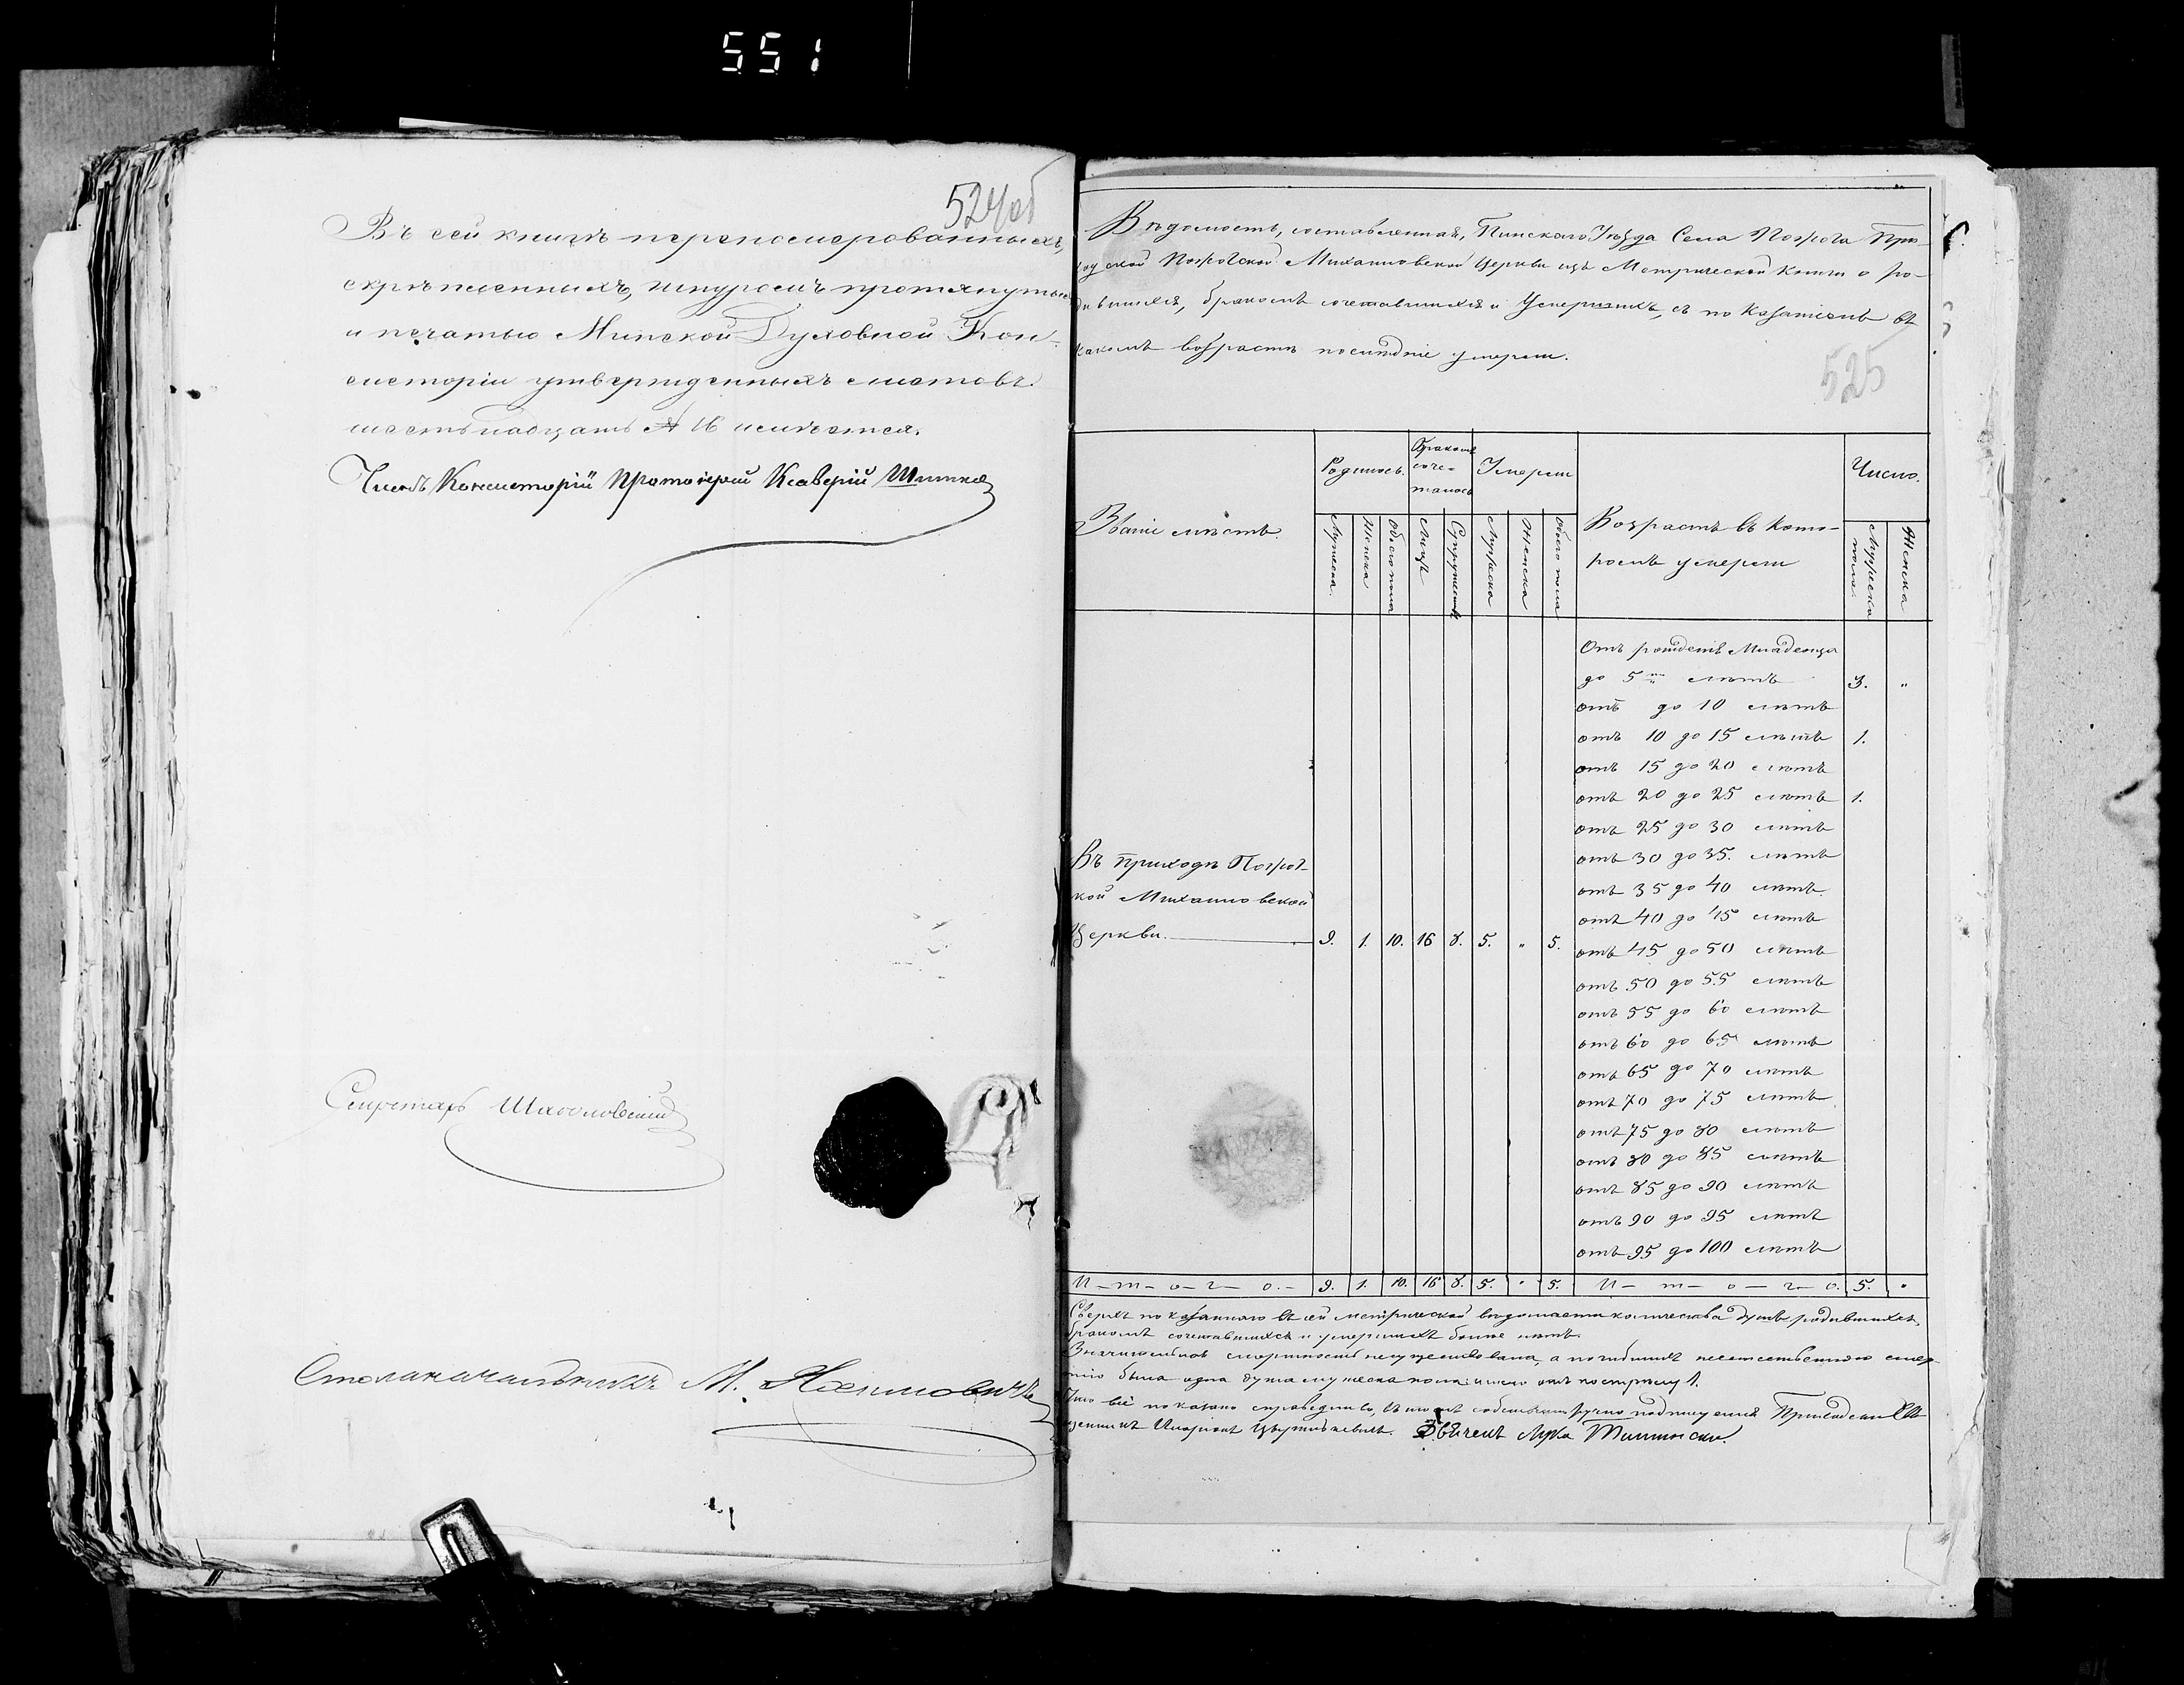 551
524об
Въ сей книгѣ перепомерованныхъ,
скрѣпленныхъ, шнуромъ протянутыхъ
и печатью Минской Духовной Кон-
систоріи утвержденныхъ листовъ
шестьнадцать № 16 имѣется.
Членъ Консисторіи Протоіерей Ксаверій
Секретарь
Столоначальникъ М.
Вѣдомость, составленная, Пинскаго Уѣзда Села Погоста При-
ходской Михаиловской Церкви изъ Метрической Книги о ро-
дившихся, бракомъ сочетавшихся и Умершихъ, съ показаніемъ въ
какомъ возрастѣ послѣдніе умерли.
525
Званіе мѣстъ.
Родилось.
Бракомъ
соче-
талось
Умерли
Возрастъ въ кото-
ромъ умерли
Число.
Мужеска.
Женска
Обоего пола
Лицъ
Супружествъ
Мужеска
Женска
Обоего пола
Мужеска
пола.
Женска
Отъ рождені Младенца
до 5ти лѣтъ 3. "
отъ до 10 лѣтъ
отъ 10 до 15 лѣтъ 1.
отъ 15 до 20 лѣтъ
отъ 20 до 25 лѣтъ 1.
отъ 25 до 30 лѣтъ
отъ 30 до 35. лѣтъ
отъ 35 до 40 лѣтъ
отъ 40 до 45 лѣтъ
отъ 45 до 50 лѣтъ
отъ 50 до 55 лѣтъ
отъ 55 до 60 лѣтъ
отъ 60 до 65 лѣтъ
отъ 65 до 70 лѣтъ
отъ 70 до 75 лѣтъ
отъ 75 до 80 лѣтъ
отъ 80 до 85 лѣтъ
отъ 85 до 90 лѣтъ
отъ 90 до 95 лѣтъ
отъ 95 до 100 лѣтъ
Въ приходѣ
кой Михаиловской
Церкви. 9. 1. 10. 16 8. 5. " 5.
И-т-о-г-о.- 9. 1. 10. 16 8. 5. " 5. И-т-о-г-о. 5. "
Сверхъ показаннаго въ сей метрической вѣдомости количества душъ родившихся,
бракомъ сочетавшихся и умершихъ болѣе нѣтъ.
Значительной смертности несуществовало, а погибшихъ неестественною смер-
тію была одна душа мужеска пола: 1.
Что всё показано справедливо, въ томъ собственноручно подписуемся Приходскій Свя-
щенникъ Иларіонъ Лука